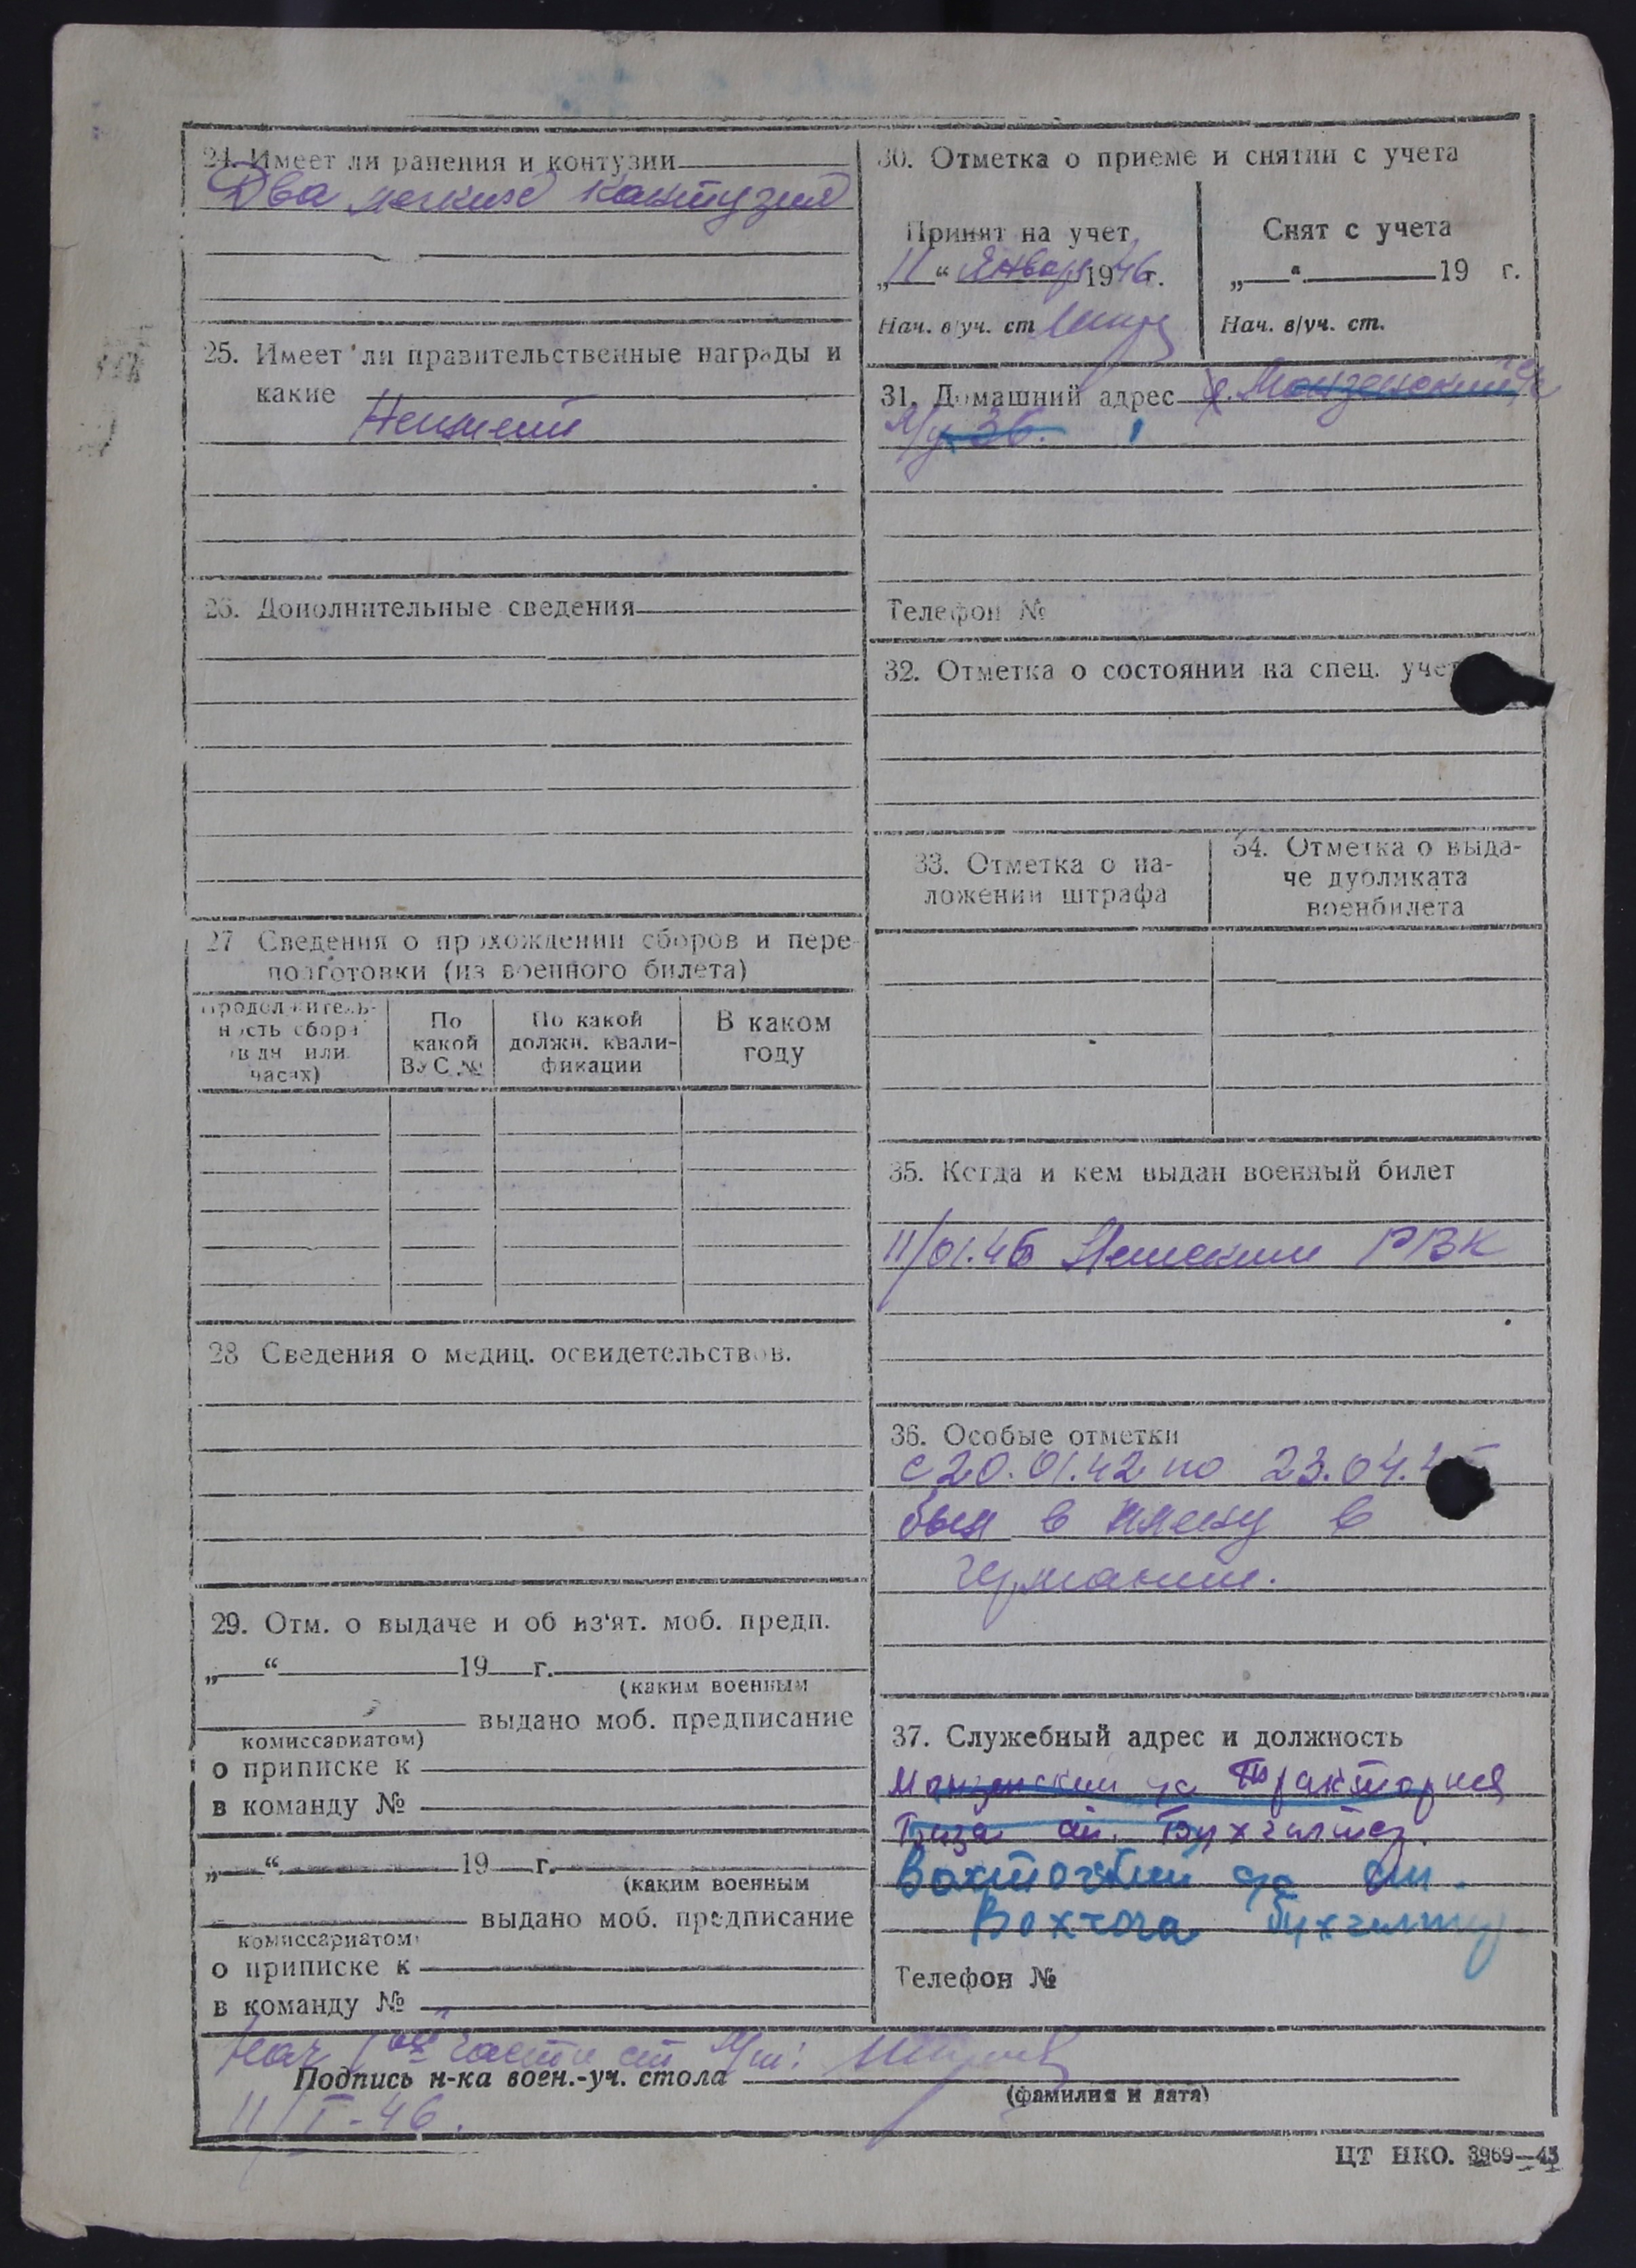 24. Имеет ли ранения и контузии
Два легкие контузии
25. Имеет ли правительственные награды и
какие
Неимеит
26. Дополнительные сведения
27 Сведения о прохождении сборов и пере-
подготовки (из военного билета)
Продолжитель-
ность сбора
(в дн или
часах)
По
какой
ВУС №
По какой
должн. квали-
фикации
В каком
году
28 Сведения о медиц. освидетельствов.
29. Отм. о выдаче и об из'ят. моб. предп.
„ “ 19 г.
(каким военным
выдано моб. предписание
комиссариатом)
о приписке к
в команду №
„ “ 19 г.
(каким военным
выдано моб. предписание
комиссариатом)
о приписке к
в команду №
30. Отметка о приеме и снятии с учета
Принят на учет
„11“ Январь 1946 г.
Нач. в/уч. ст
Снят с учета
„ “ 19 г.
Нач. в/уч. ст.
31. Домашний адрес
36.
Телефон №
32. Отметка о состоянии на спец. учет
33. Отметка о на-
ложении штрафа
34. Отметка о выда-
че дубликата
военбилета
35. Когда и кем выдан военный билет
11/01.46 РВК
36. Особые отметки
с 20.01.42 по 23.04.4
был в плену в
германии.
37. Служебный адрес и должность
Монзенский Тракторная
База ст. Бухгалтер.
Вохтожский
Вохтога бухгалтер
Телефон №
Нач части
Подпись н-ка воен.-уч. стола
(фамилия и дата)
11/I-46.
ЦТ НКО. 3969—45